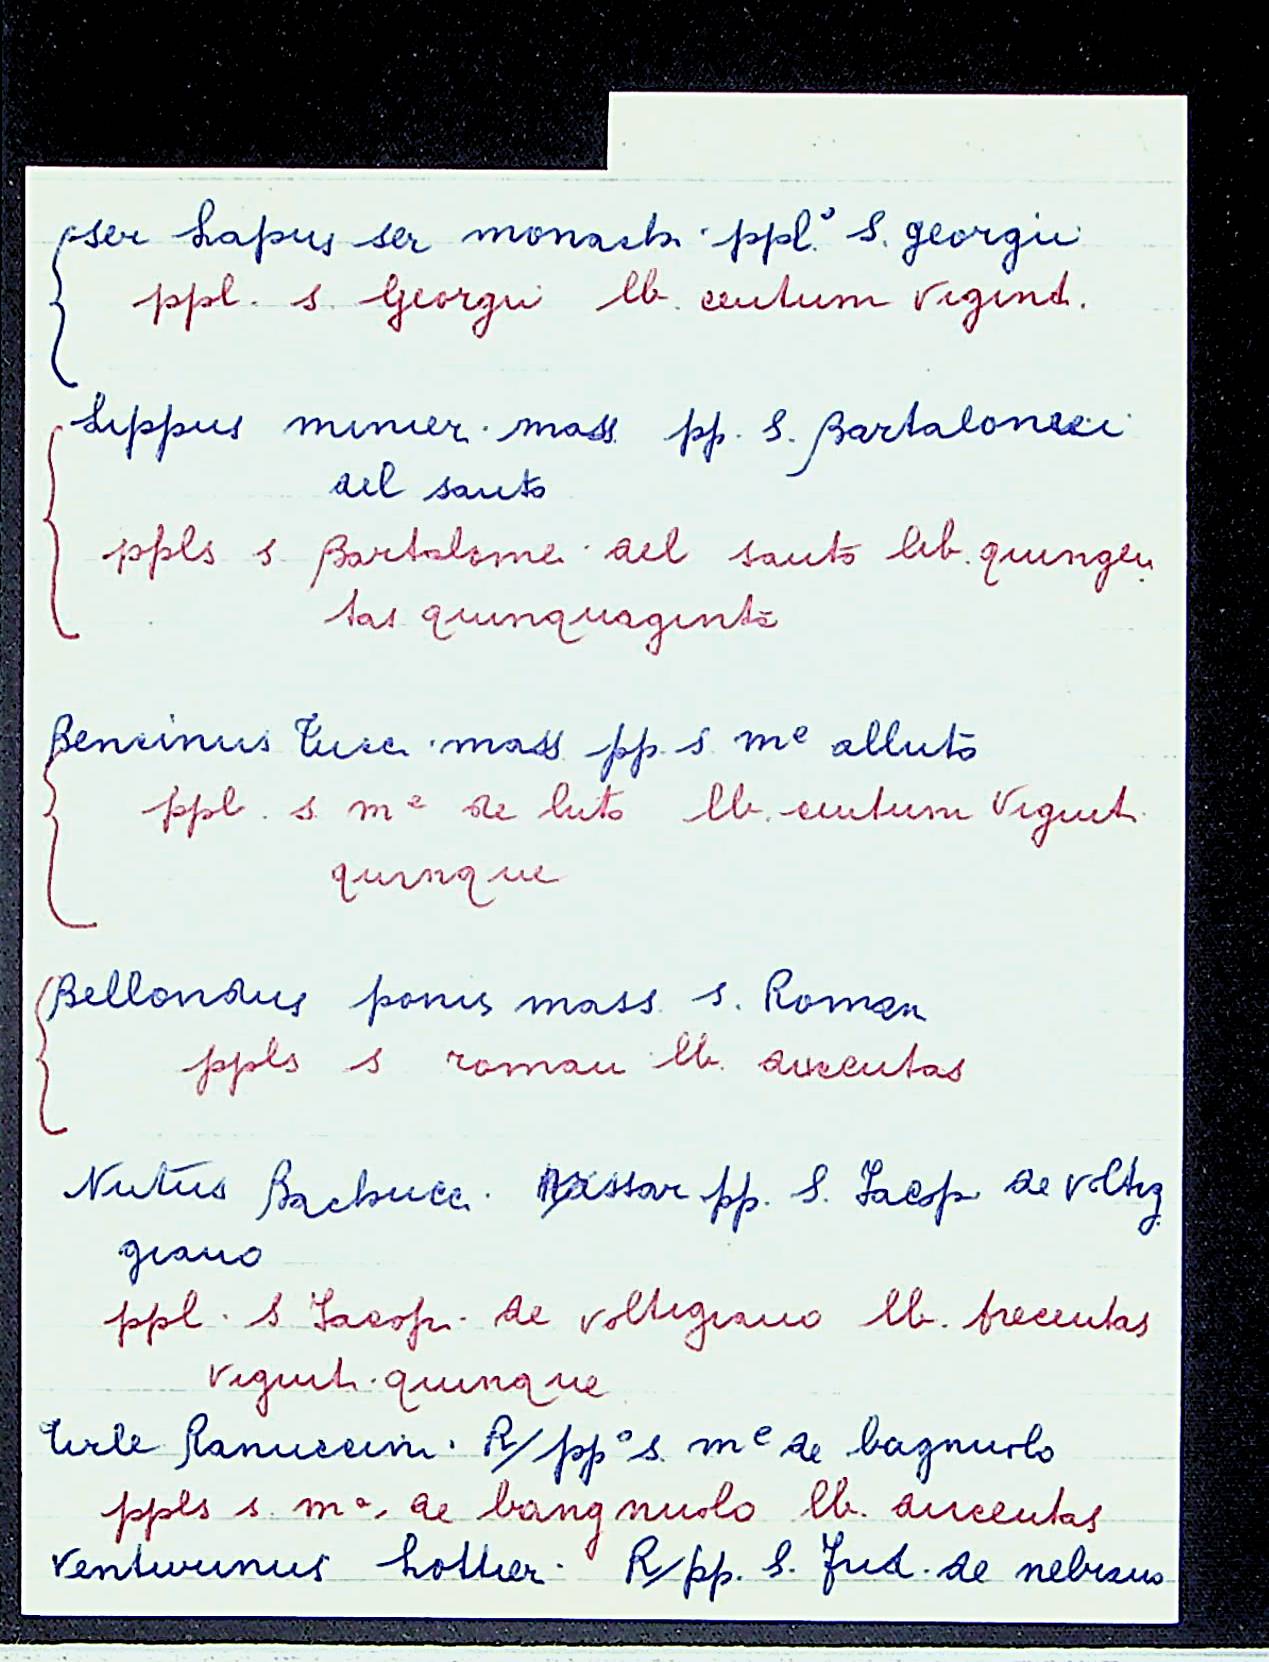 ser Lapus ser monach. ppl.° S. georgii
ppl. s. Georgii lb. centum vigint.
Lippus minier. mass pp. S. Bartalomei
del santo
ppls s Bartolome. del santo lib. quingen
tas quinquaginta
Bencinus Tucci. mass pp. s mᵉ alluto
ppl. s. mᵉ de luto lb. centum Vigint.
quinque
Bellondus ponis mass. s. Roman
ppls s roman lb. ducentas
Nutus Bachucc. Massar pp. S. Jacop. de voltig
giano
ppl. s Jacop. de voltigiano lb. trecentas
vigint. quinque
Turle Ranuccini. R/ pp° s. mᵉ de bagnuolo
ppls s. mᵃ. de bangnuolo lb. ducentas
Venturinus Lottier. R/ pp. S. Jud. de nebiano